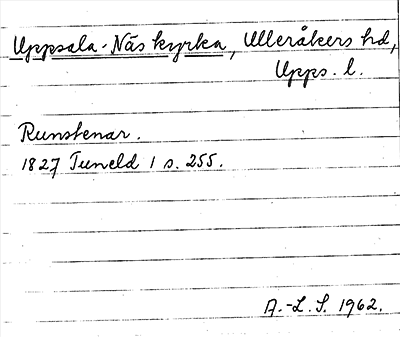 Uppsala-Näs kyrka, Ulleråkers hd,
Upps. l.
Runstenar.
1827 Tuneld 1 s. 255.
A.-L. S. 1962.